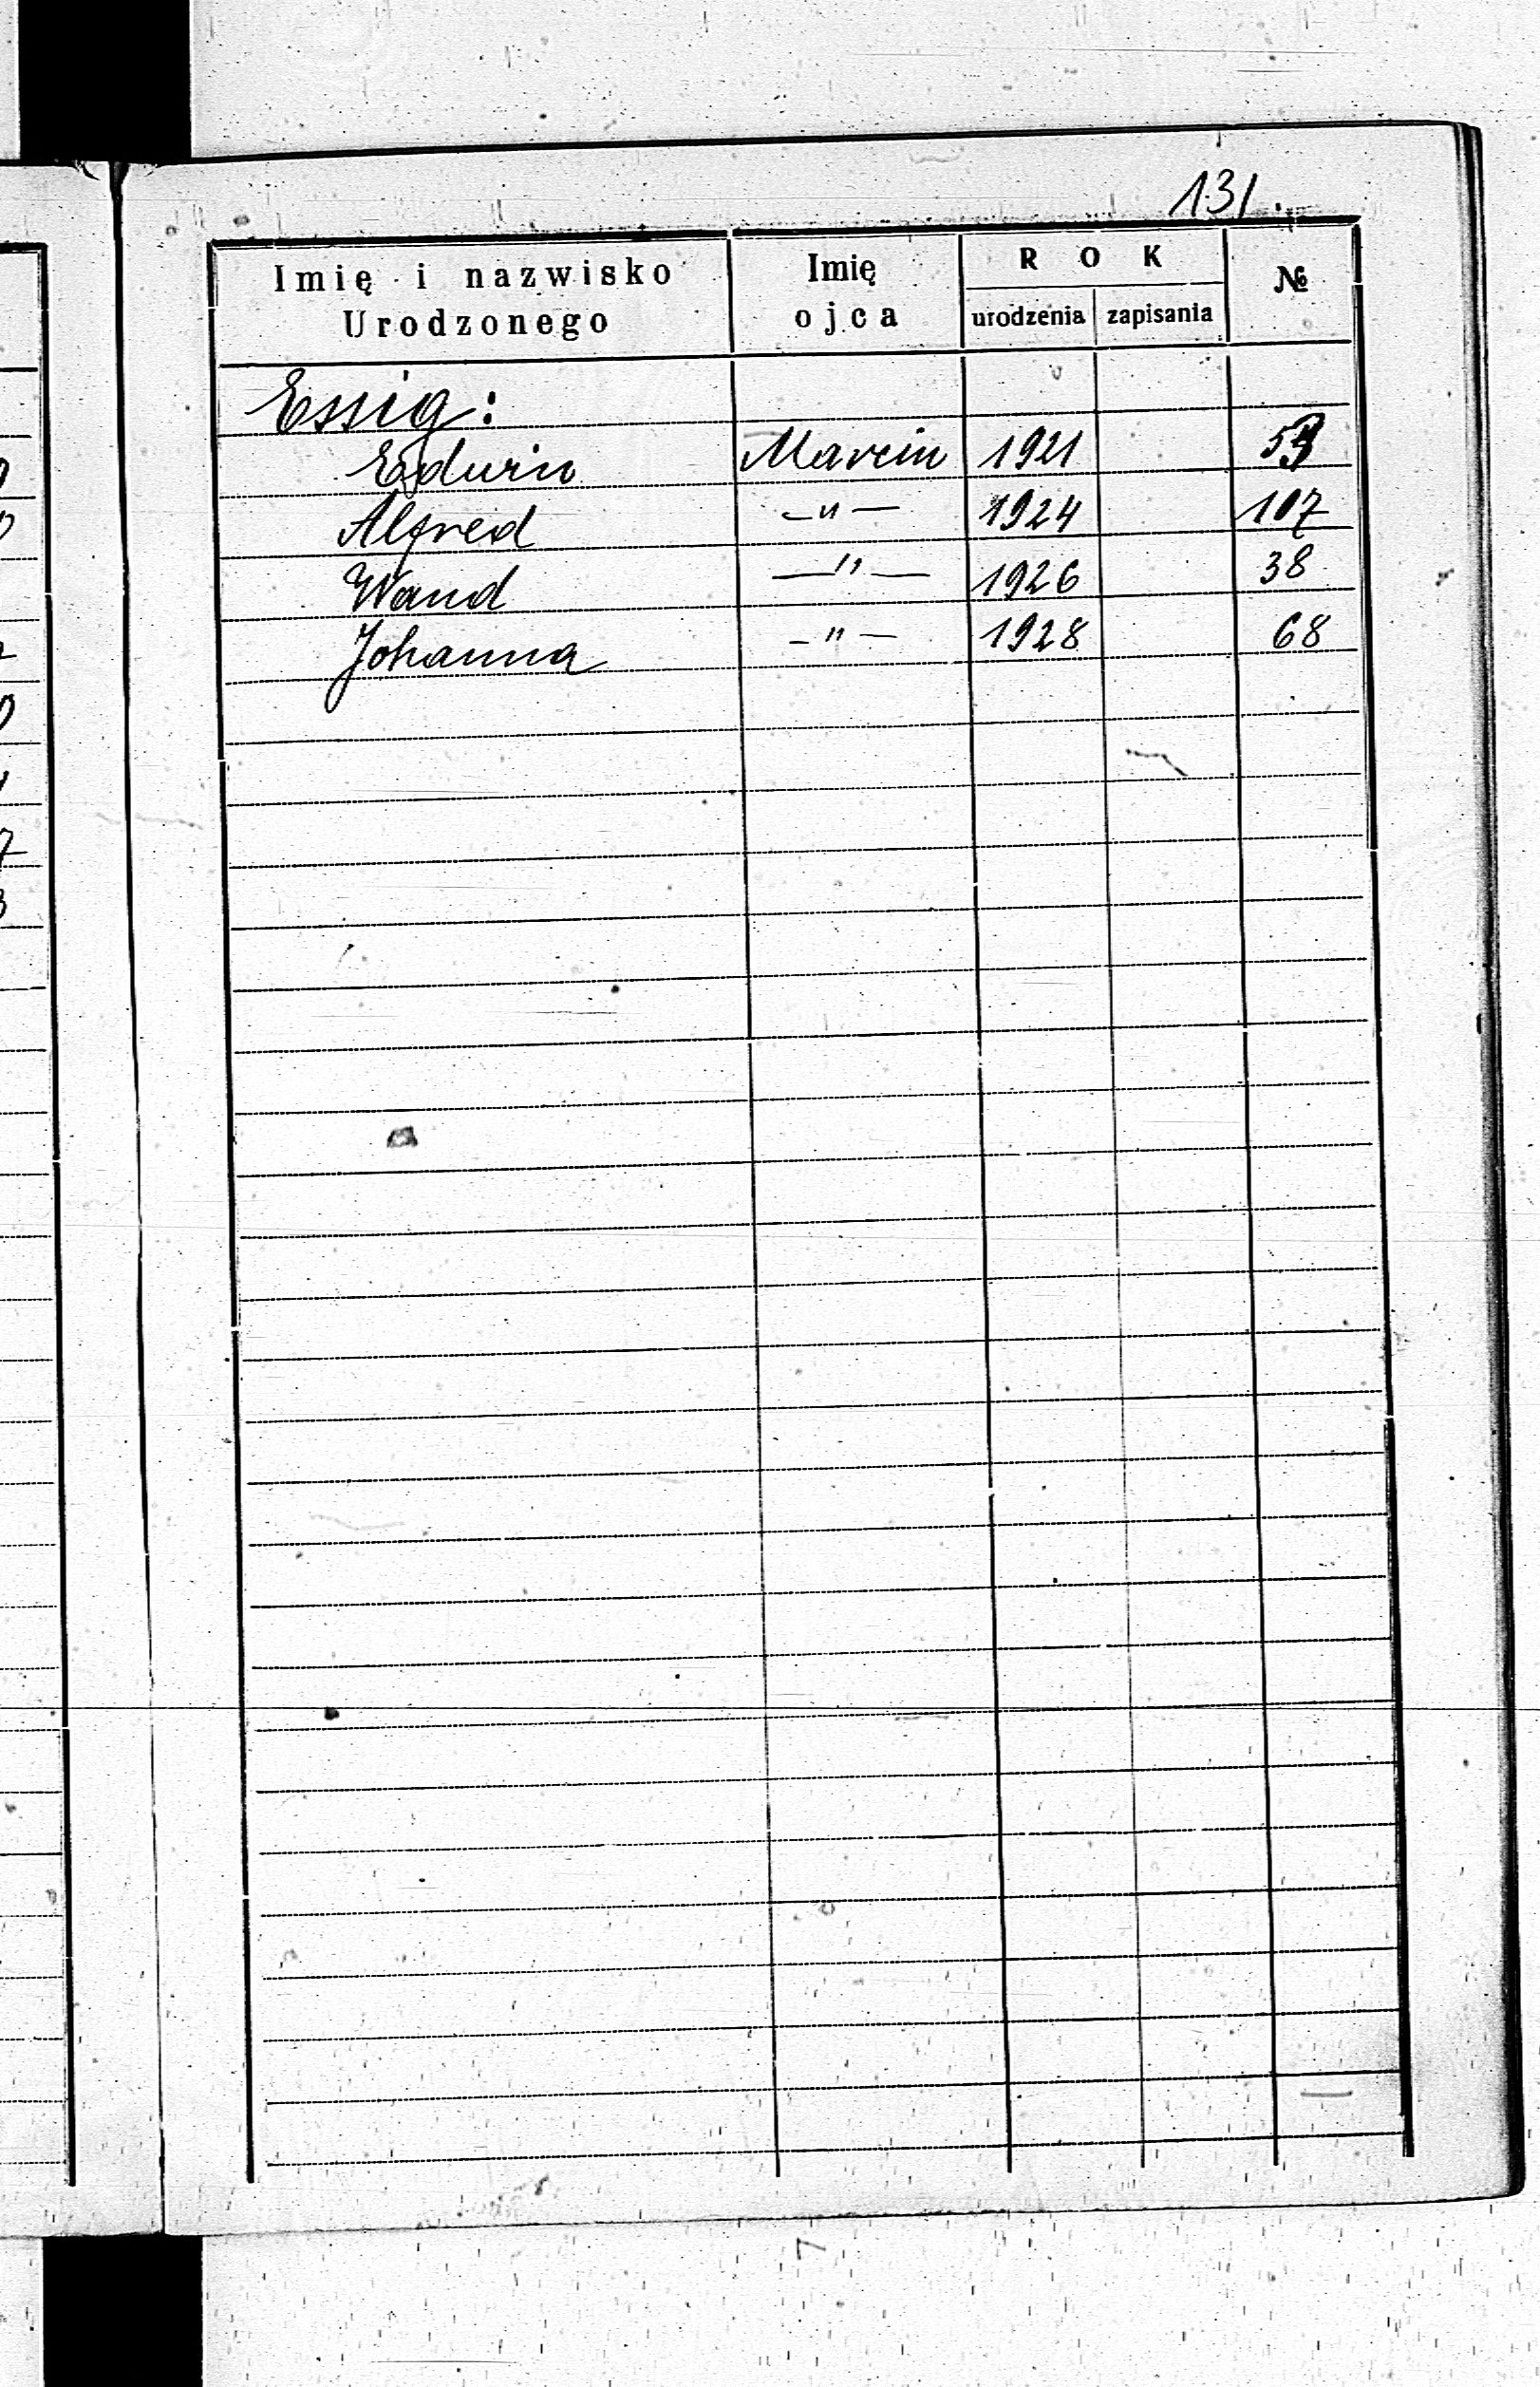 131.
Imię i nazwisko Urodzonego
Imię ojca
ROK
urodzenia
zapisania
№
Essig:
Edwin Marcin 1921
Alfred —"— 1924 107
Wand —"— 1926 38
Johanna —"— 1928 68